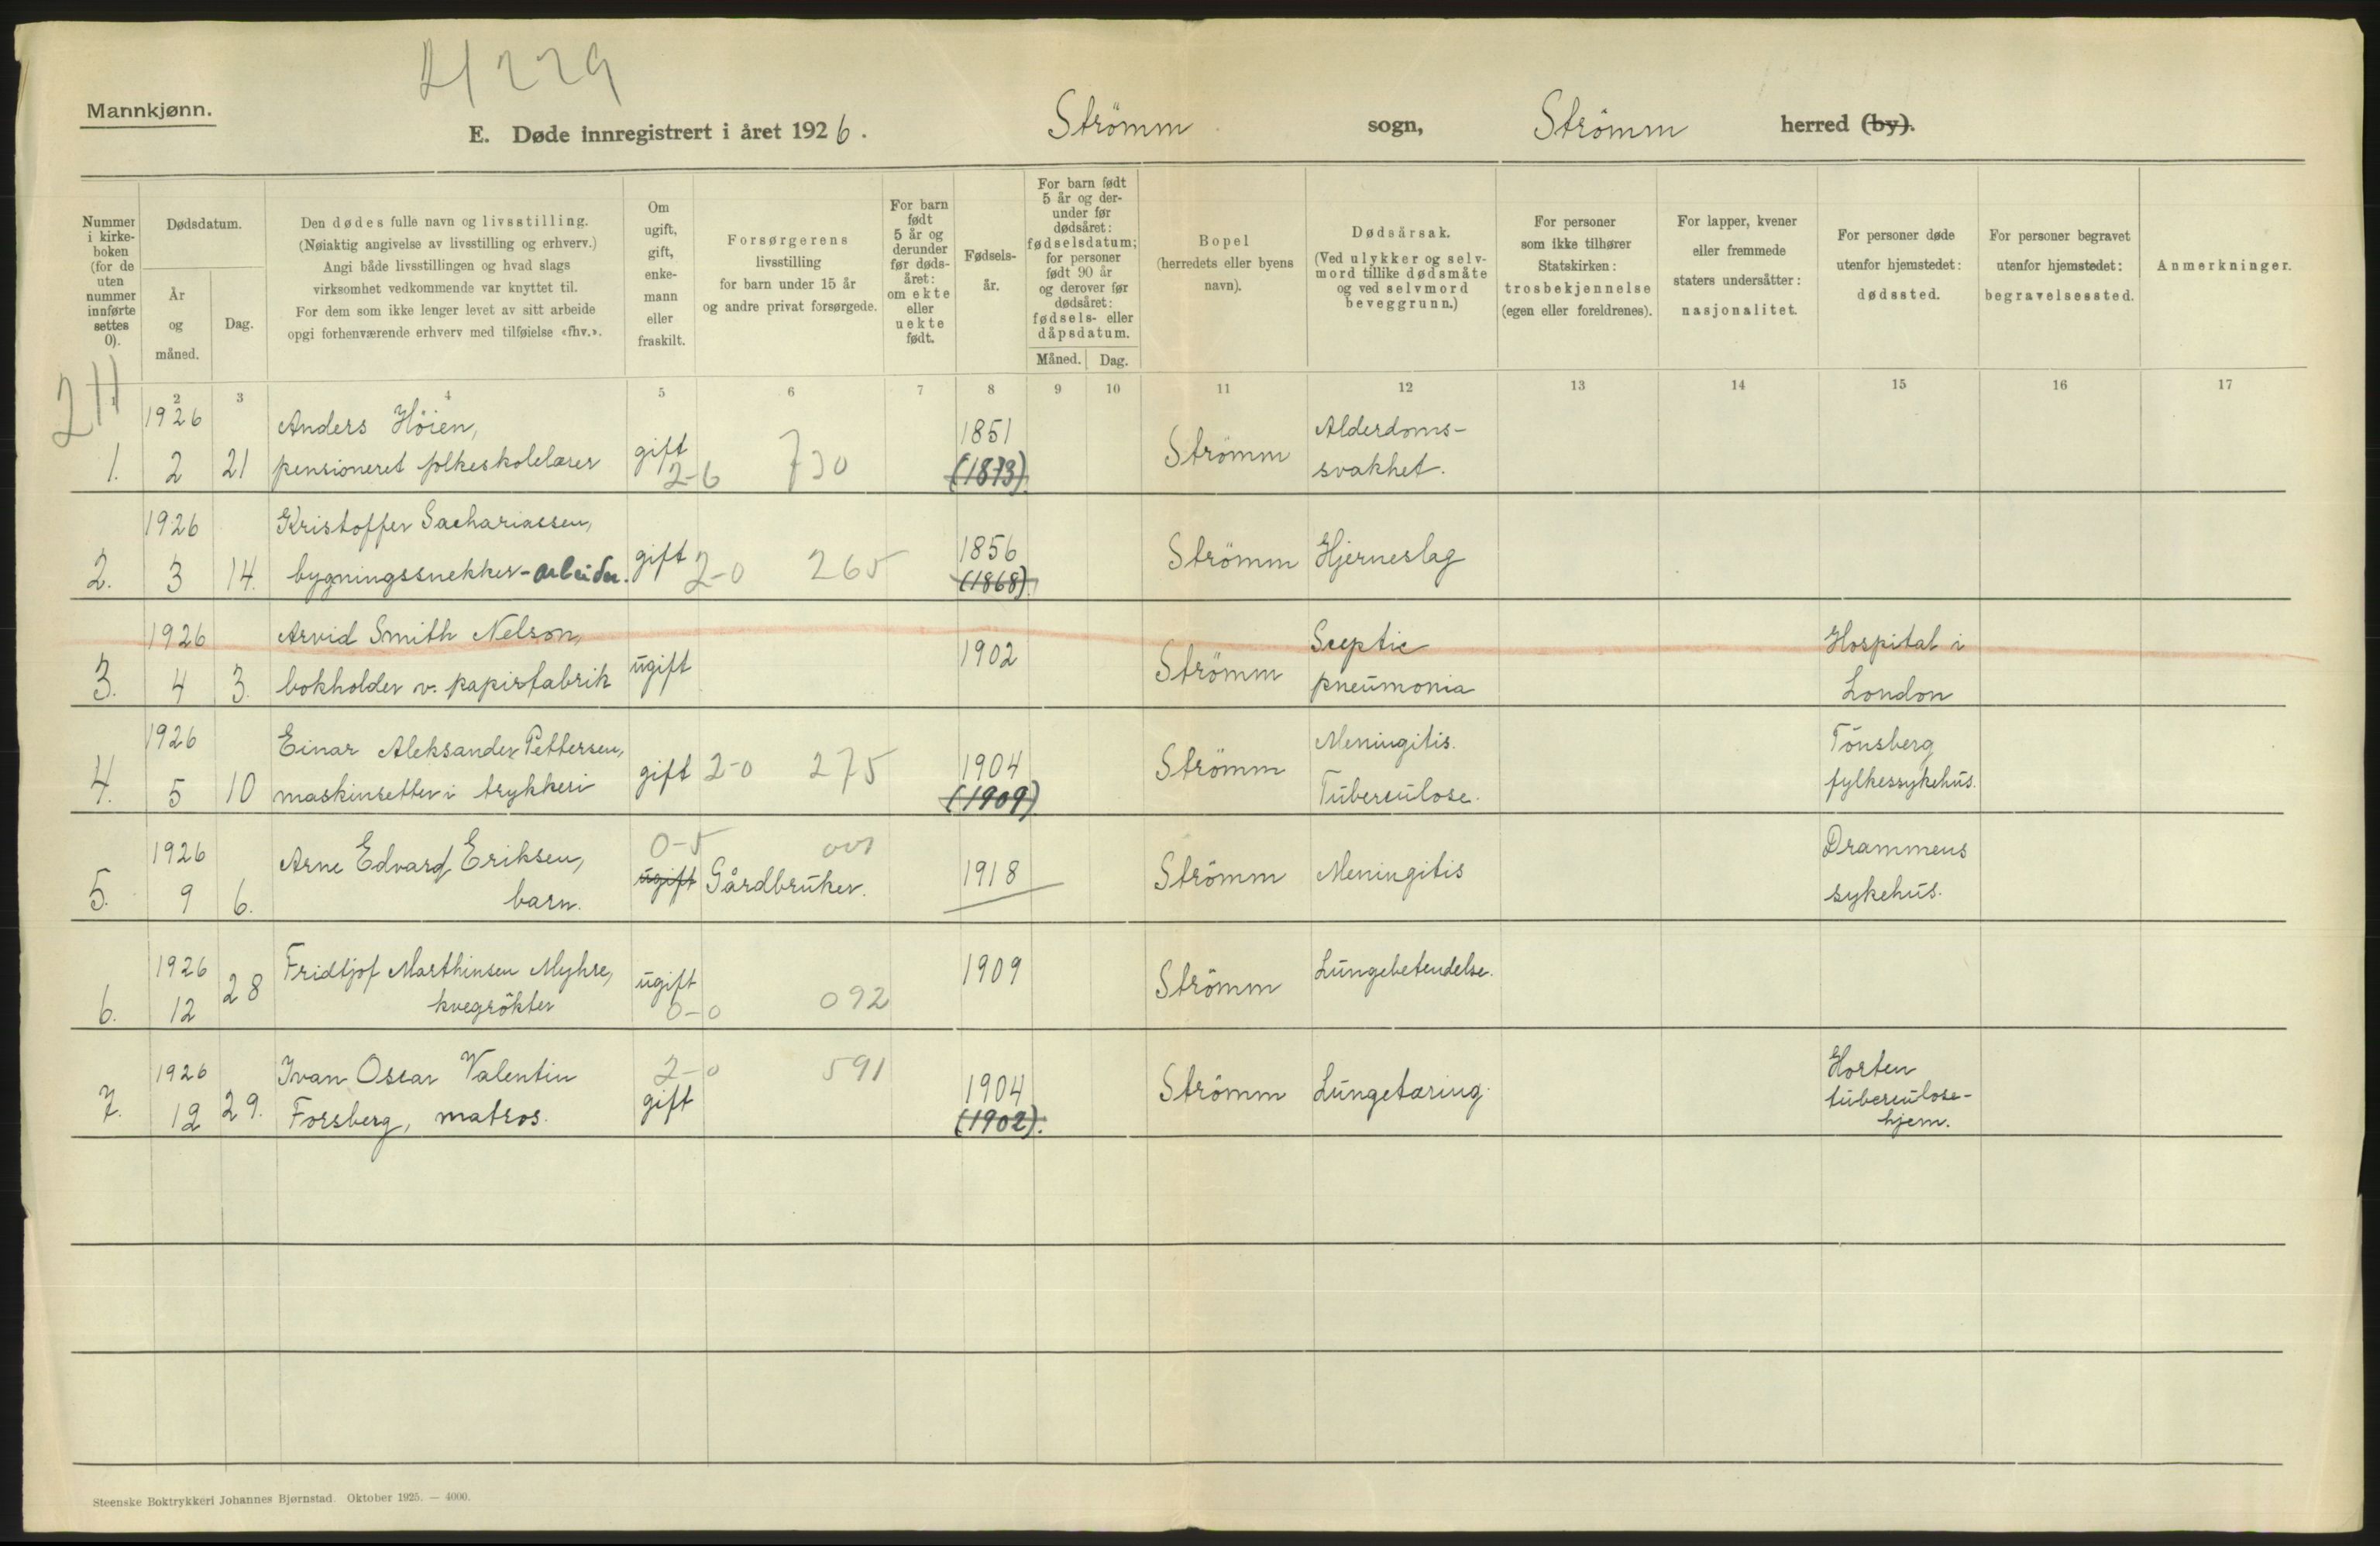 21229
Mannkjønn.
E. Døde innregistrert i året 1926. Strömm sogn, Strömm herred (by).
Nummer i kirkeboken (for de uten nummer innførte settes 0).
Dødsdatum.
År og måned.
Dag.
Den dødes fulle navn og livsstilling.
(Nøiaktig angivelse av livsstilling og erhverv.)
Angi både livsstillingen og hvad slags
virksomhet vedkommende var knyttet til.
For dem som ikke lenger levet av sitt arbeide
opgi forhenværende erhverv med tilføielse «fhv.».
Om ugift, gift, enkemann eller fraskilt.
Forsørgerens
livsstilling
for barn under 15 år
og andre privat forsørgede.
For barn født 5 år og derunder før dødsåret: om ekte eller uekte født.
Fødselsår.
For barn født 5 år og derunder før dødsåret: fødselsdatum; for personer født 90 år og derover før dødsåret: fødsels- eller dåpsdatum.
Måned. Dag.
Bopel
(herredets eller byens
navn).
Dødsårsak.
(Ved ulykker og selv-
mord tillike dødsmåte
og ved selvmord
beveggrunn.)
For personer
som ikke tilhører
Statskirken:
trosbekjennelse
(egen eller foreldrenes).
For lapper, kvener
eller fremmede
staters undersåtter:
nasjonalitet.
For personer døde
utenfor hjemstedet:
dødssted.
For personer begravet
utenfor hjemstedet:
begravelsessted.
Anmerkninger.
1 2 3 4 5 6 7 8 9 10 11 12 13 14 15 16 17
1926 Anders Höien, 1851 Alderdoms-
1. 2 21 pensioneret folkeskolelærer gift 2-6 730 (1873) Strömm svakhet.
1926 Kristoffer Sachariassen, 1856
2. 3 14. bygningssnekker-arbeider. gift 2-0 265 (1868) Strömm Hjerneslag
1926 Arvid Smith Nelson, 1902 Sceptic Hospital i
3. 4 3. bokholder v. papirfabrik ugift Strömm pneumonia London
1926 Einar Aleksander Pettersen, 1904 Meningitis. Tönsberg
4. 5 10 maskinsetter i trykkeri gift 2-0 275 (1909) Strömm Tuberculose. fylkessykehus.
1926 Arne Edvard Eriksen, 0-5 1918 Drammens
5. 9 6. barn. ugift Gårdbruker. Strömm Meningitis sykehus.
1926 Fridtjof Marthinsen Myhre, ugift 1909 Lungebetendelse.
6. 12 28 kvegrökter 0-0 092 Strömm
1926 Ivan Oscar Valentin 2-0 591 1904 Horten
7. 12 29. Forsberg, matros. gift (1902). Strömm Lungetæring. tuberculose-
hjem.
Steenske Boktrykkeri Johannes Bjørnstad. Oktober 1925. — 4000.